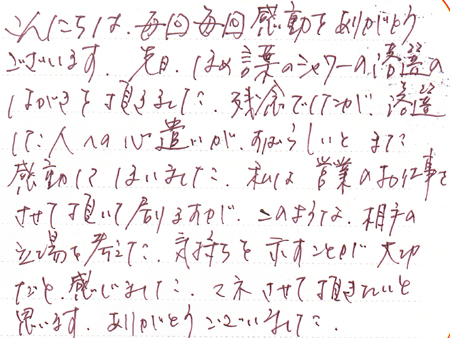 こんにちは、毎回毎回感動をありがとう
ございます。先日、ほめ言葉のシャワーの落語の
はがきを頂きました。残念でしたが、落選
した人への心遣いが、すばらしいと また
感動してしまいました。私は 営業のお仕事を
させて頂いて居りますが、このような、相手の
立場を考えた、気持ちを示すことが 大切
だと、感じました。マネさせて頂きたいと
思います。ありがとうございました。